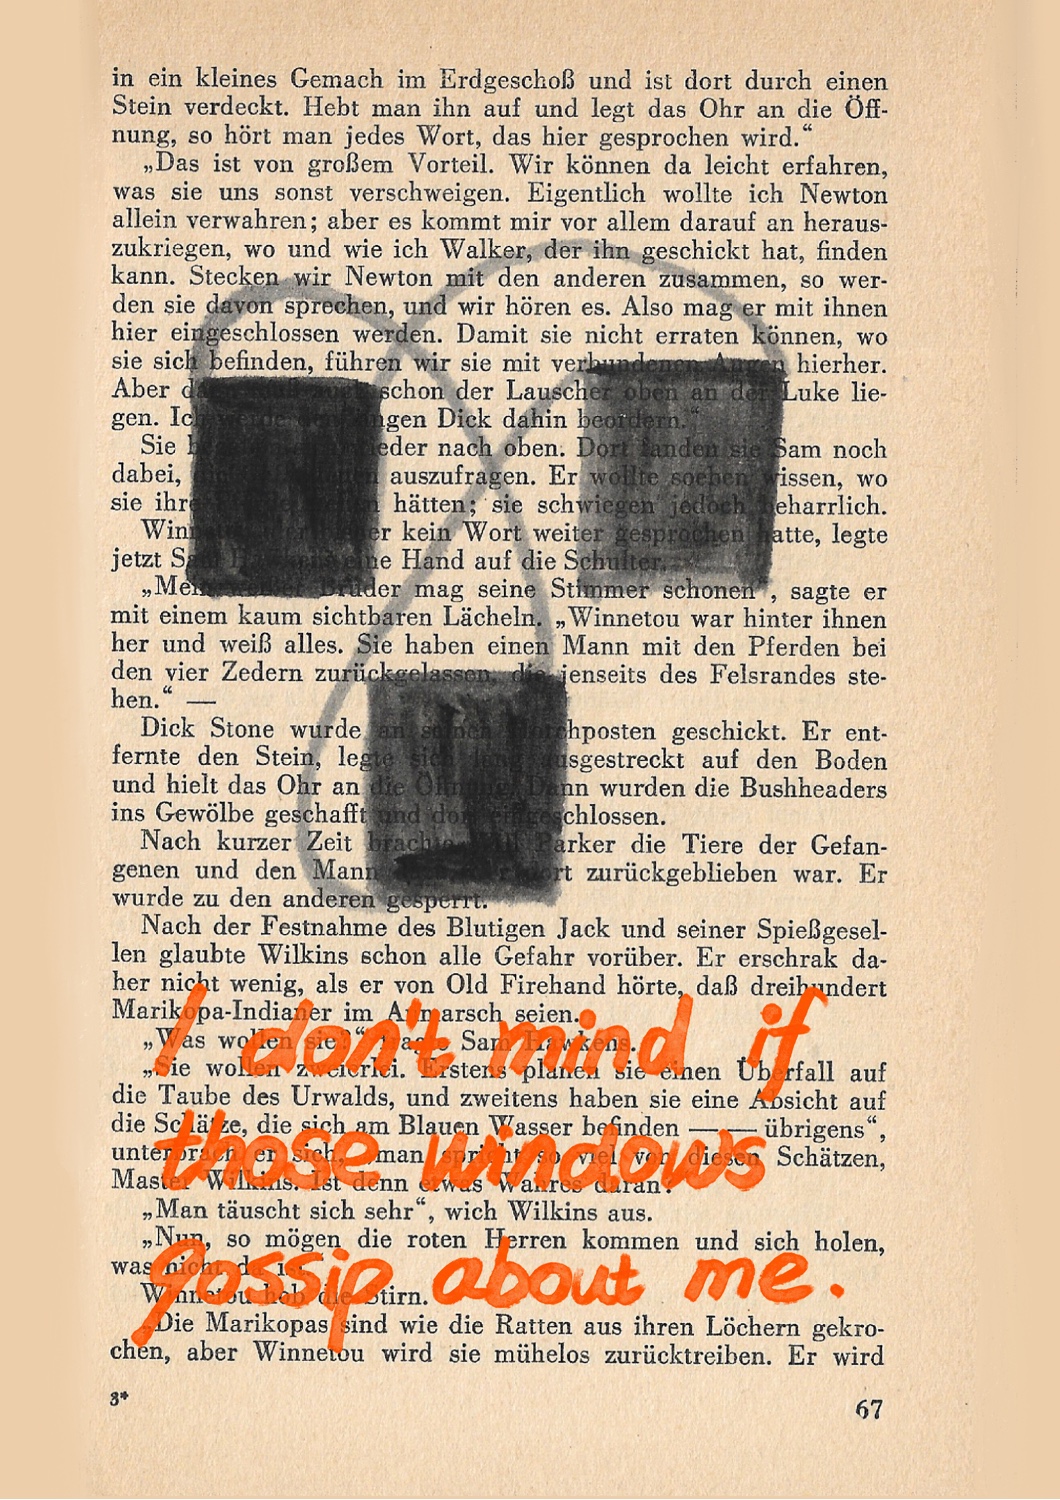 in ein kleines Gemach im Erdgeschoß und ist dort durch einen
Stein verdeckt. Hebt man ihn auf und legt das Ohr an die Öff-
nung, so hört man jedes Wort, das hier gesprochen wird.“
„Das ist von großem Vorteil. Wir können da leicht erfahren,
was sie uns sonst verschweigen. Eigentlich wollte ich Newton
allein verwahren; aber es kommt mir vor allem darauf an heraus-
zukriegen, wo und wie ich Walker, der ihn geschickt hat, finden
kann. Stecken wir Newton mit den anderen zusammen, so wer-
den sie davon sprechen, und wir hören es. Also mag er mit ihnen
hier eingeschlossen werden. Damit sie nicht erraten können, wo
sie sich befinden, führen wir sie mit verbundenen Augen hierher.
Aber schon der Lauscher oben an der Luke lie-
gen. Ich werde den jungen Dick dahin beordern.“
Sie wieder nach oben. Dort fanden sie Sam noch
dabei, auszufragen. Er wollte soeben wissen, wo
sie ihre hätten; sie schwiegen jedoch beharrlich.
Winnetou, der kein Wort weiter gesprochen hatte, legte
jetzt Sam Hawkens eine Hand auf die Schulter.
„Mein weißer Bruder mag seine Stimmer schonen“, sagte er
mit einem kaum sichtbaren Lächeln. „Winnetou war hinter ihnen
her und weiß alles. Sie haben einen Mann mit den Pferden bei
den vier Zedern zurückgelassen, die jenseits des Felsrandes ste-
hen.“ —
Dick Stone wurde an seinen Horchposten geschickt. Er ent-
fernte den Stein, legte sich lang ausgestreckt auf den Boden
und hielt das Ohr an die Öffnung. Dann wurden die Bushheaders
ins Gewölbe geschafft und dort eingeschlossen.
Nach kurzer Zeit brachte Will Parker die Tiere der Gefan-
genen und den Mann dort zurückgeblieben war. Er
wurde zu den anderen gesperrt.
Nach der Festnahme des Blutigen Jack und seiner Spießgesel-
len glaubte Wilkins schon alle Gefahr vorüber. Er erschrak da-
her nicht wenig, als er von Old Firehand hörte, daß dreihundert
Marikopa-Indianer im Anmarsch seien.
„Was wollen sie?“ fragte Sam Hawkens.
„Sie wollen zweierlei. Erstens planen sie einen Überfall auf
die Taube des Urwalds, und zweitens haben sie eine Absicht auf
die Schätze, die sich am Blauen Wasser befinden —— übrigens“,
unterbrach er sich, „man spricht so viel von diesen Schätzen,
Master Wilkins. Ist denn etwas Wahres daran?“
„Man täuscht sich sehr“, wich Wilkins aus.
„Nun, so mögen die roten Herren kommen und sich holen,
was nicht da ist.“
Winnetou hob die Stirn.
„Die Marikopas sind wie die Ratten aus ihren Löchern gekro-
chen, aber Winnetou wird sie mühelos zurücktreiben. Er wird
I don't mind if
those windows
gossip about me.
3*
67